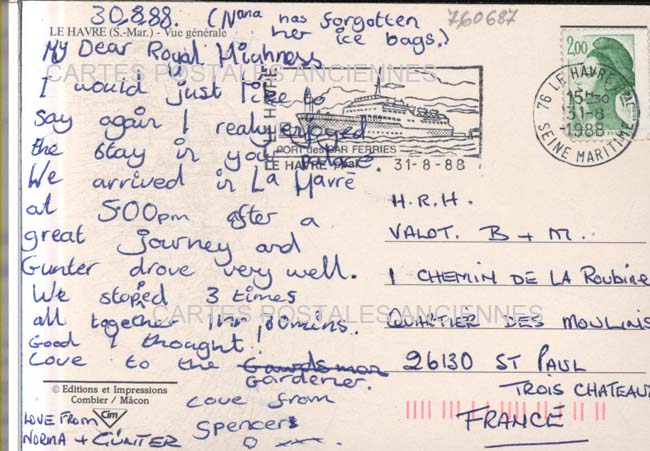 30.8.88. (Nana has forgotten
her ice bags.)
760687
LE HAVRE (S.-Mar.) - Vue générale
My Dear Royal Highness
CARTES POSTALES ANCIENNES
I would just like to
say again I really enjoyed
the stay in you palace.
We arrived in La Havre
at 5.00pm after a
great journey and
Gunter drove very well.
We stoped 3 times
all together 1hr 30mins..
Good I thought!
Love to the
Gardener.
Love from
Spencer
LOVE FROM
NORMA + GÜNTER
© Editions et Impressions
Combier / Mâcon
Cim
LE HAVRE
PORT des CAR FERRIES
LE HAVRE 31-8-88
2,00
76 LE HAVRE PAL
31-8
1988
SEINE MARITIME
H.R.H.
VALOT. B + M.
1 CHEMIN DE LA ROUBINE
QUARTIER DES MOULINS
CARTES POSTALES ANCIENNES
26130 ST PAUL
TROIS CHATEAU
FRANCE